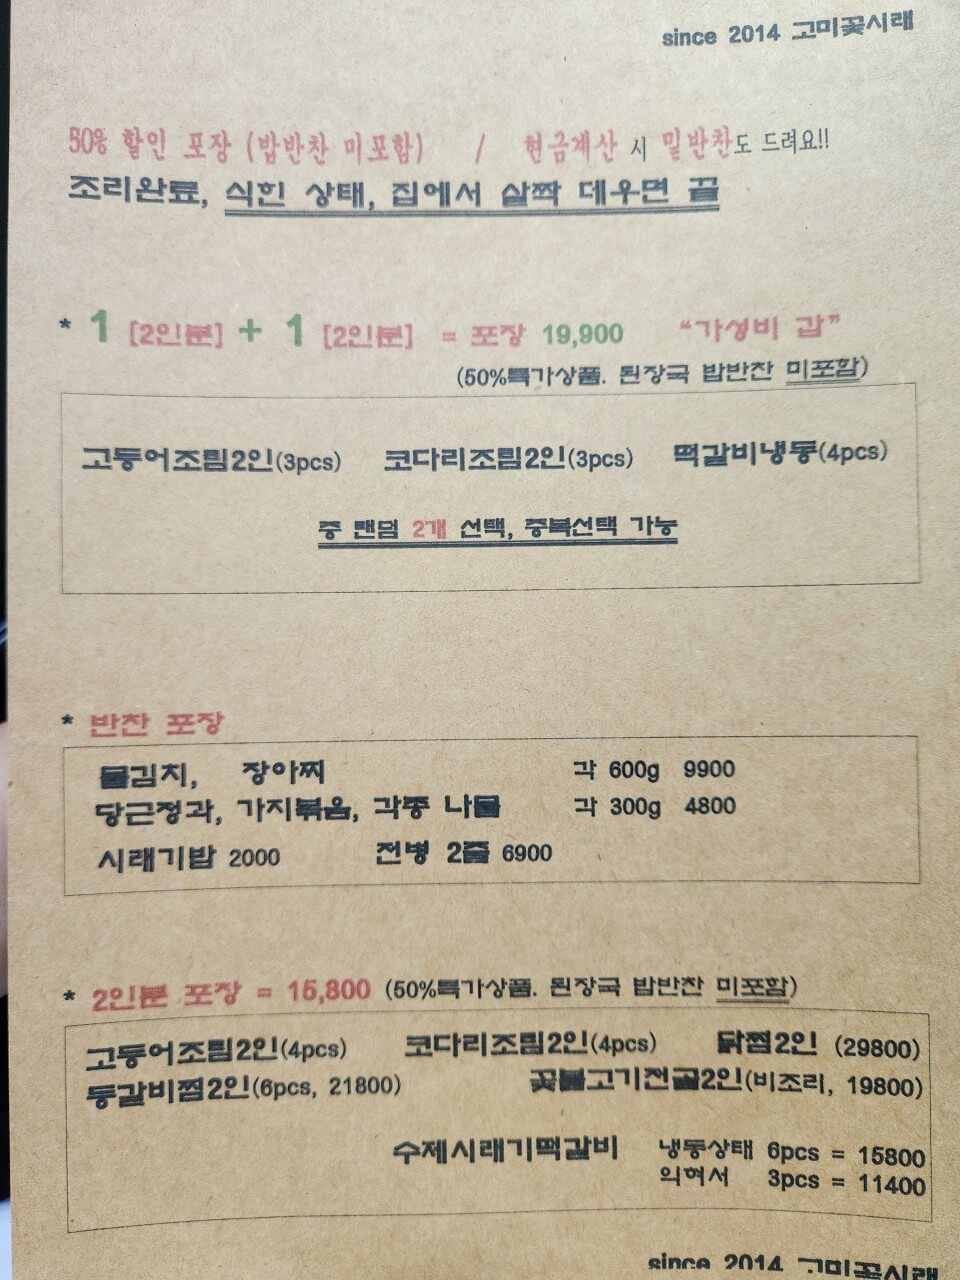 since 2014 고미꽃시래
50% 할인 포장 (밥반찬 미포함) / 현금계산 시 밑반찬도 드려요!!
조리완료, 식힌 상태, 집에서 살짝 데우면 끝
* 1 [2인분] + 1 [2인분] = 포장 19,900 “가성비 갑”
(50%특가상품. 된장국 밥반찬 미포함)
고등어조림2인(3pcs) 코다리조림2인(3pcs) 떡갈비냉동(4pcs)
중 랜덤 2개 선택, 중복선택 가능
* 반찬 포장
물김치, 장아찌 각 600g 9900
당근정과, 가지볶음, 각종 나물 각 300g 4800
시래기밥 2000 전병 2줄 6900
* 2인분 포장 = 15,800 (50%특가상품. 된장국 밥반찬 미포함)
고등어조림2인(4pcs) 코다리조림2인(4pcs) 닭찜2인 (29800)
등갈비찜2인(6pcs, 21800) 꽃불고기전골2인(비조리, 19800)
수제시래기떡갈비 냉동상태 6pcs = 15800
익혀서 3pcs = 11400
since 2014 고미꽃시래